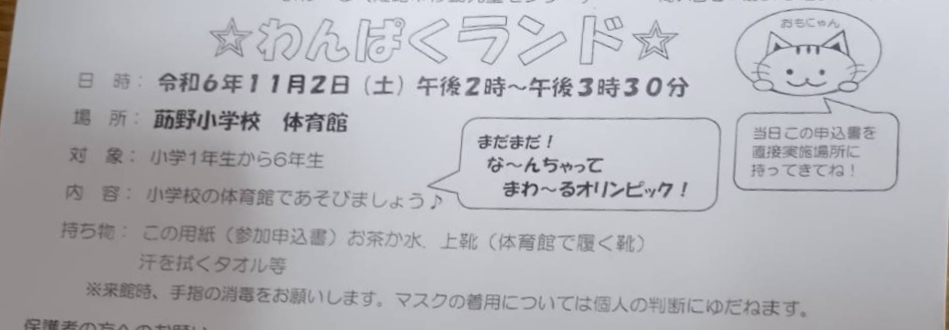 ☆わんぱくランド☆
おもにゃん
日 時： 令和6年11月2日（土）午後2時～午後3時30分
場 所： 莇野小学校 体育館
対 象： 小学1年生から6年生
内 容： 小学校の体育館であそびましょう♪
まだまだ！
な～んちゃって
まわ～るオリンピック！
当日この申込書を
直接実施場所に
持ってきてね！
持ち物： この用紙（参加申込書）お茶か水、上靴（体育館で履く靴）
汗を拭くタオル等
※来館時、手指の消毒をお願いします。マスクの着用については個人の判断にゆだねます。
保護者の方へのお願い